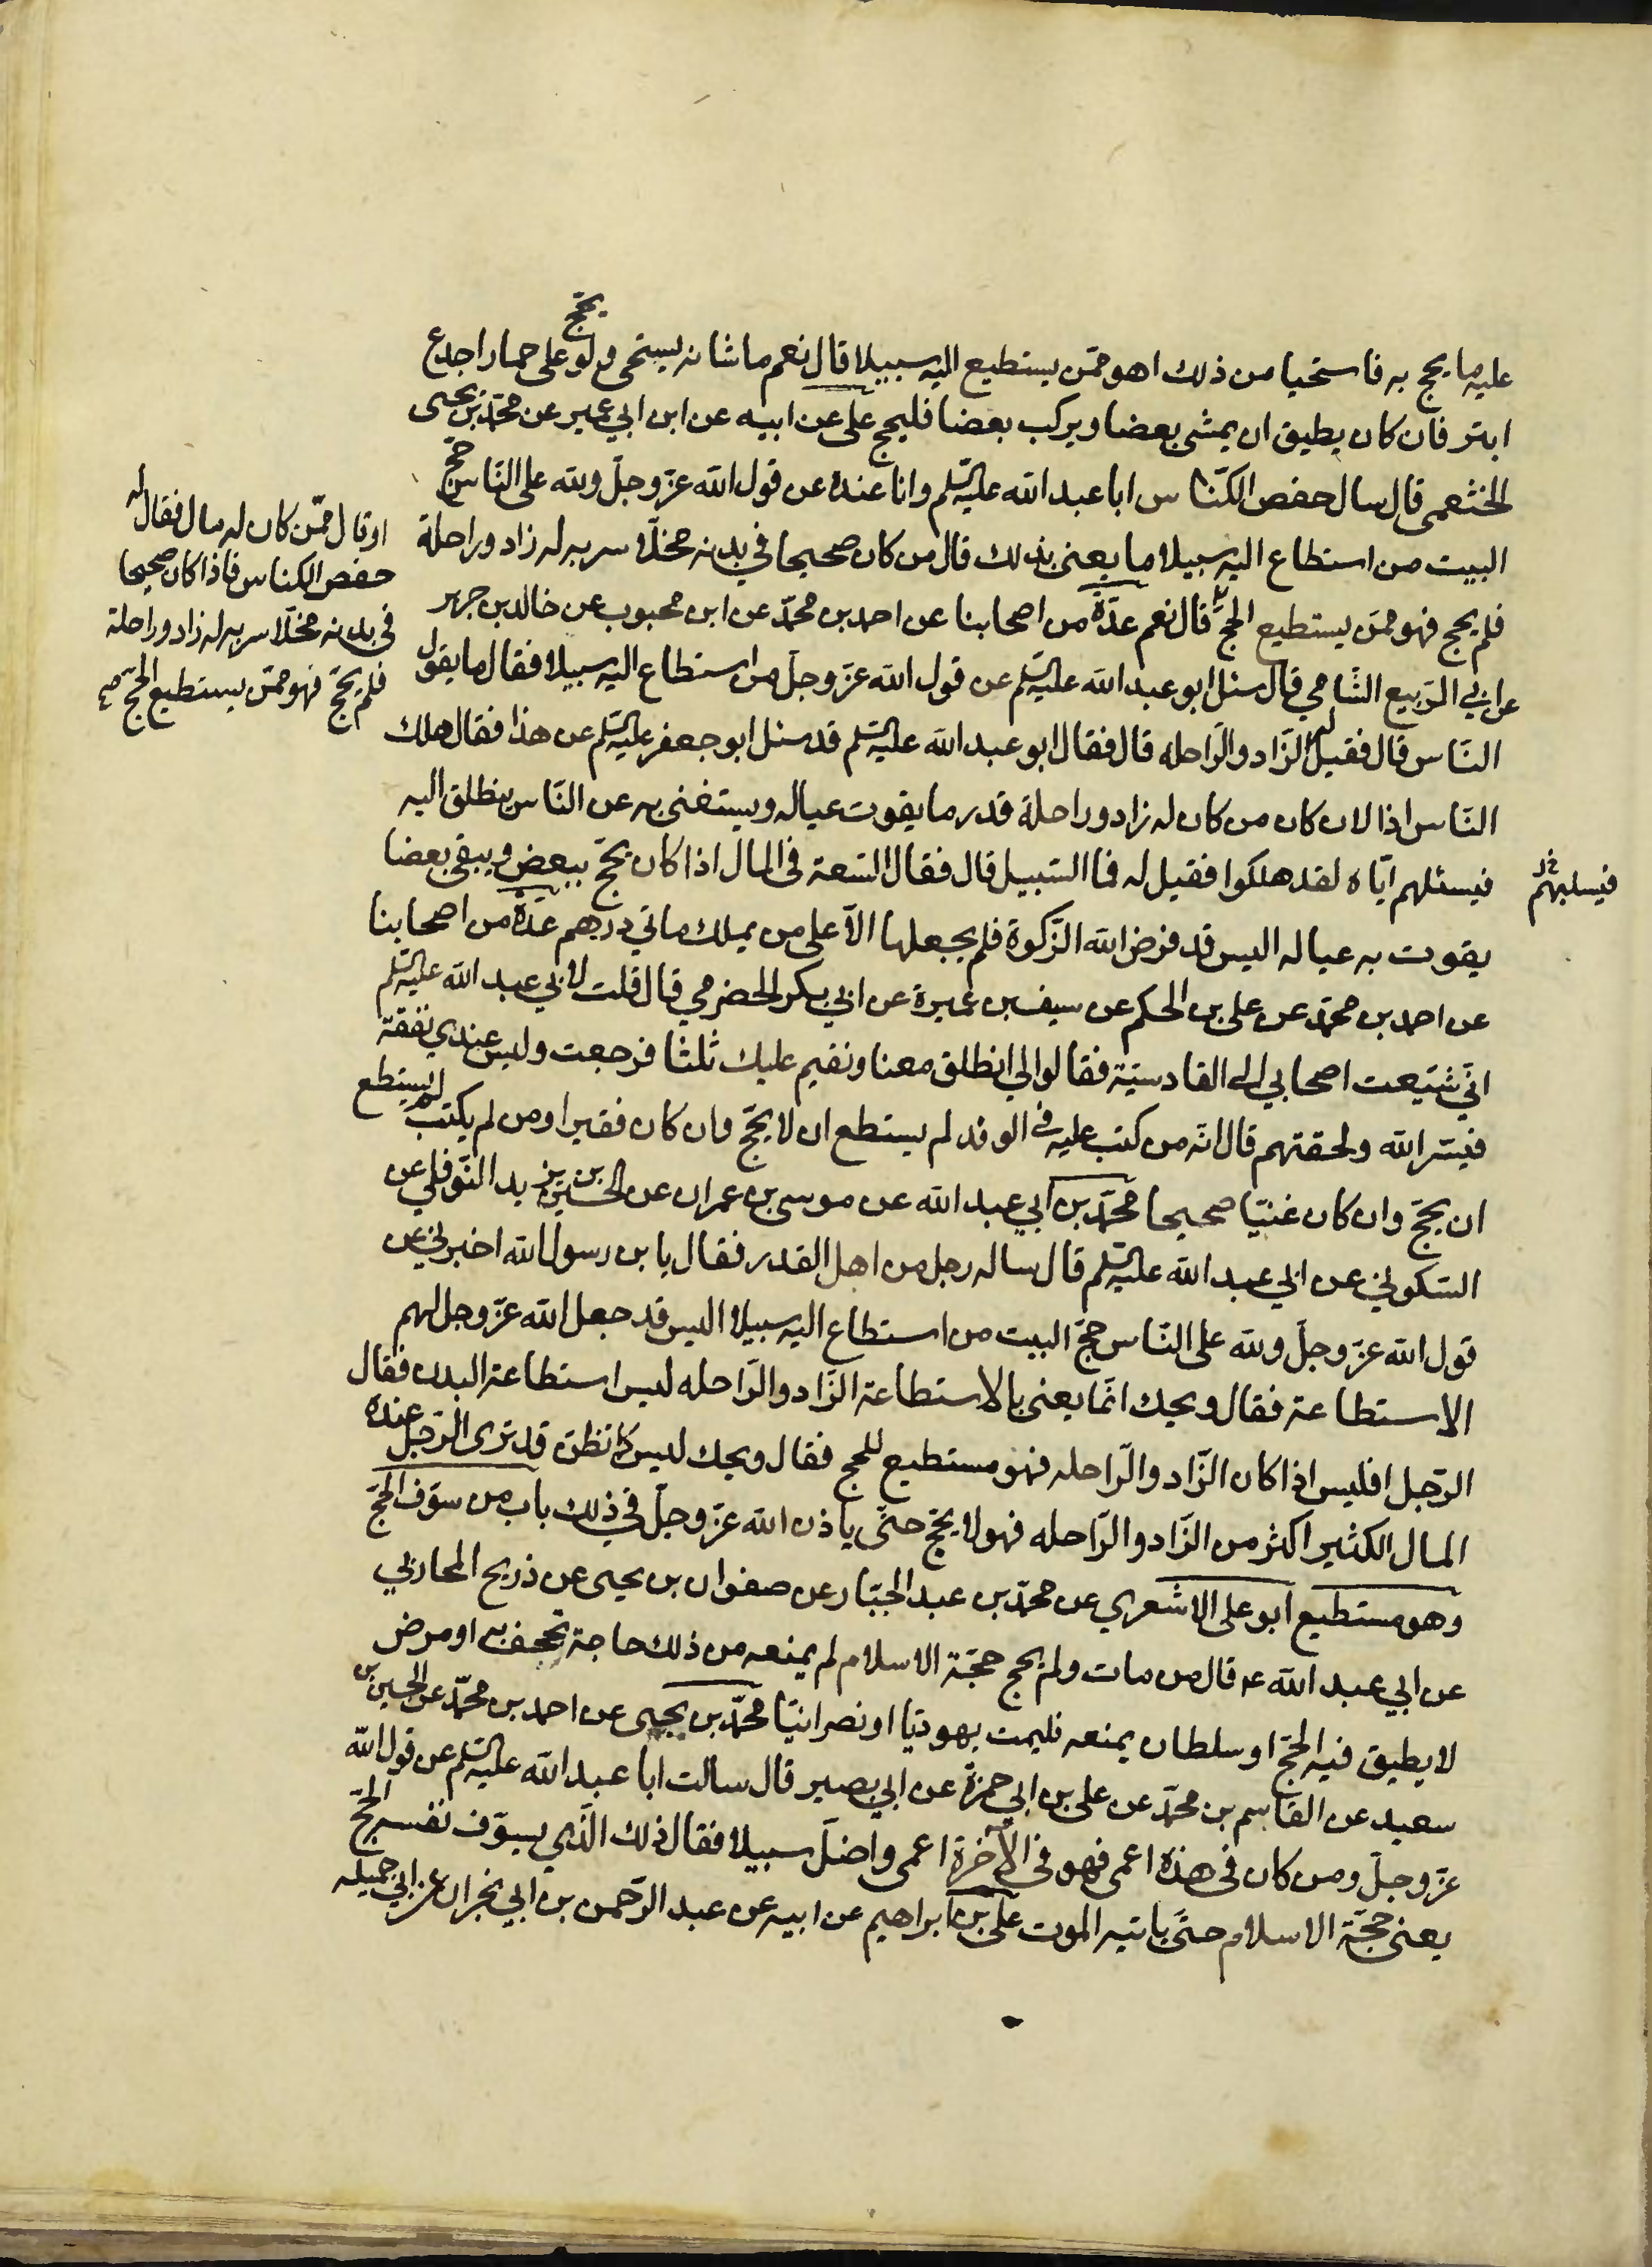 عليه ما يحج به فاستحيا من ذلك اهو ممّن يستطيع اليه سبيلا قال نعم ما شانه يستحى ولو يحجّ على حمار اجدع
ابتر فان كان يطيق ان يمشى بعضا ويركب بعضا فليحج على عن ابيه عن ابن ابي عمير عن محمّد بن يحيى
الخثعمى قال سال حفص الكنّاس ابا عبد الله عليه السّلم وانا عنده عن قول الله عزّ وجلّ ولله على النّاس حجّ
البيت من استطاع اليه سبيلا ما يعنى بذلك قال من كان صحيحا في بدنه مخلّا سربه له زاد وراحلة
او قال ممّن كان له مال فقال له
حفص الكناس فاذا كان صحيحا
في بدنه مخلّا سربه له زاد وراحلة
فلم يحجّ فهو ممّن يستطيع الحجّ صح
فلم يحج فهو ممّن يستطيع الحجّ قال نعم عدّة من اصحابنا عن احمد بن محمّد عن ابن محبوب عن خالد بن جرير
عن ابي الرّبيع الشّامي قال سئل ابو عبد الله عليه السّلم عن قول الله عزّ وجلّ من استطاع اليه سبيلا فقال ما يقول
النّاس قال فقيل له الزّاد والرّاحله قال فقال ابو عبد الله عليه السّلم قد سئل ابو جعفر عليه السّلم عن هذا فقال هلك
النّاس اذا لان كان من كان له زاد وراحلة قدر ما يقوت عياله ويستغنى به عن النّاس ينطلق اليه
فيسئلهم ايّاه لقد هلكوا فقيل له فما السّبيل قال فقال السّعة في المال اذا كان يحجّ ببعض ويبقى بعضا
فيسلبهم خ
يقوت به عياله اليس قد فرض الله الزّكوة فلم يجعلها الّا على من يملك ماتي درهم عدّة من اصحابنا
عن احمد بن محمّد عن على بن الحكم عن سيف بن عميرة عن ابي بكر الحضرمي قال قلت لابي عبد الله عليه السّلم
انّي شيّعت اصحابي الى القادسيّة فقالوا لي انطلق معنا ونقيم عليك ثلثا فرجعت وليس عندي نفقة
فيسّر الله ولحقتهم قال انّه من كتب عليه في الوفد لم يستطع ان لا يحجّ وان كان فقيرا ومن لم يكتب لم يستطع
ان يحجّ وان كان غنيّا صحيحا محمّد بن ابي عبد الله عن موسى بن عمران عن الحسين بن يزيد النّوفلي عن
السّكوني عن ابي عبد الله عليه السّلم قال ساله رجل من اهل القدر فقال يا بن رسول الله اخبرني عن
قول الله عزّ وجلّ ولله على النّاس حجّ البيت من استطاع اليه سبيلا اليس قد جعل الله عزّ وجل لهم
الاستطاعة فقال ويحك انّما يعنى بالاستطاعة الزّاد والرّاحله ليس استطاعة البدن فقال
الرّجل افليس اذا كان الزّاد والرّاحله فهو مستطيع للحج فقال ويحك ليس كما تظنّ قد ترى الرّجل عنده
المال الكثير اكثر من الزّاد والرّاحله فهو لا يحجّ حتّى ياذن الله عزّ وجلّ في ذلك باب من سوّف الحجّ
وهو مستطيع ابو على الاشعري عن محمّد بن عبد الجبّار عن صفوان بن يحيى عن ذريح المحاربي
عن ابي عبد الله ع قال من مات ولم يحج حجّة الاسلام لم يمنعه من ذلك حاجة تجحف به او مرض
لا يطيق فيه الحجّ او سلطان يمنعه فليمت يهوديّا او نصرانيّا محمّد بن يحيى عن احمد بن محمّد عن الحسين بن
سعيد عن القاسم بن محمّد عن على بن ابي حمزة عن ابي بصير قال سالت ابا عبد الله عليه السّلم عن قول الله
عزّ وجلّ ومن كان في هذه اعمى فهو في الآخرة اعمى واضلّ سبيلا فقال ذلك الّذي يسوّف نفسه الحجّ
يعنى حجّة الاسلام حتّى ياتيه الموت على بن ابراهيم عن ابيه عن عبد الرّحمن بن ابي نجران عن ابي جميله